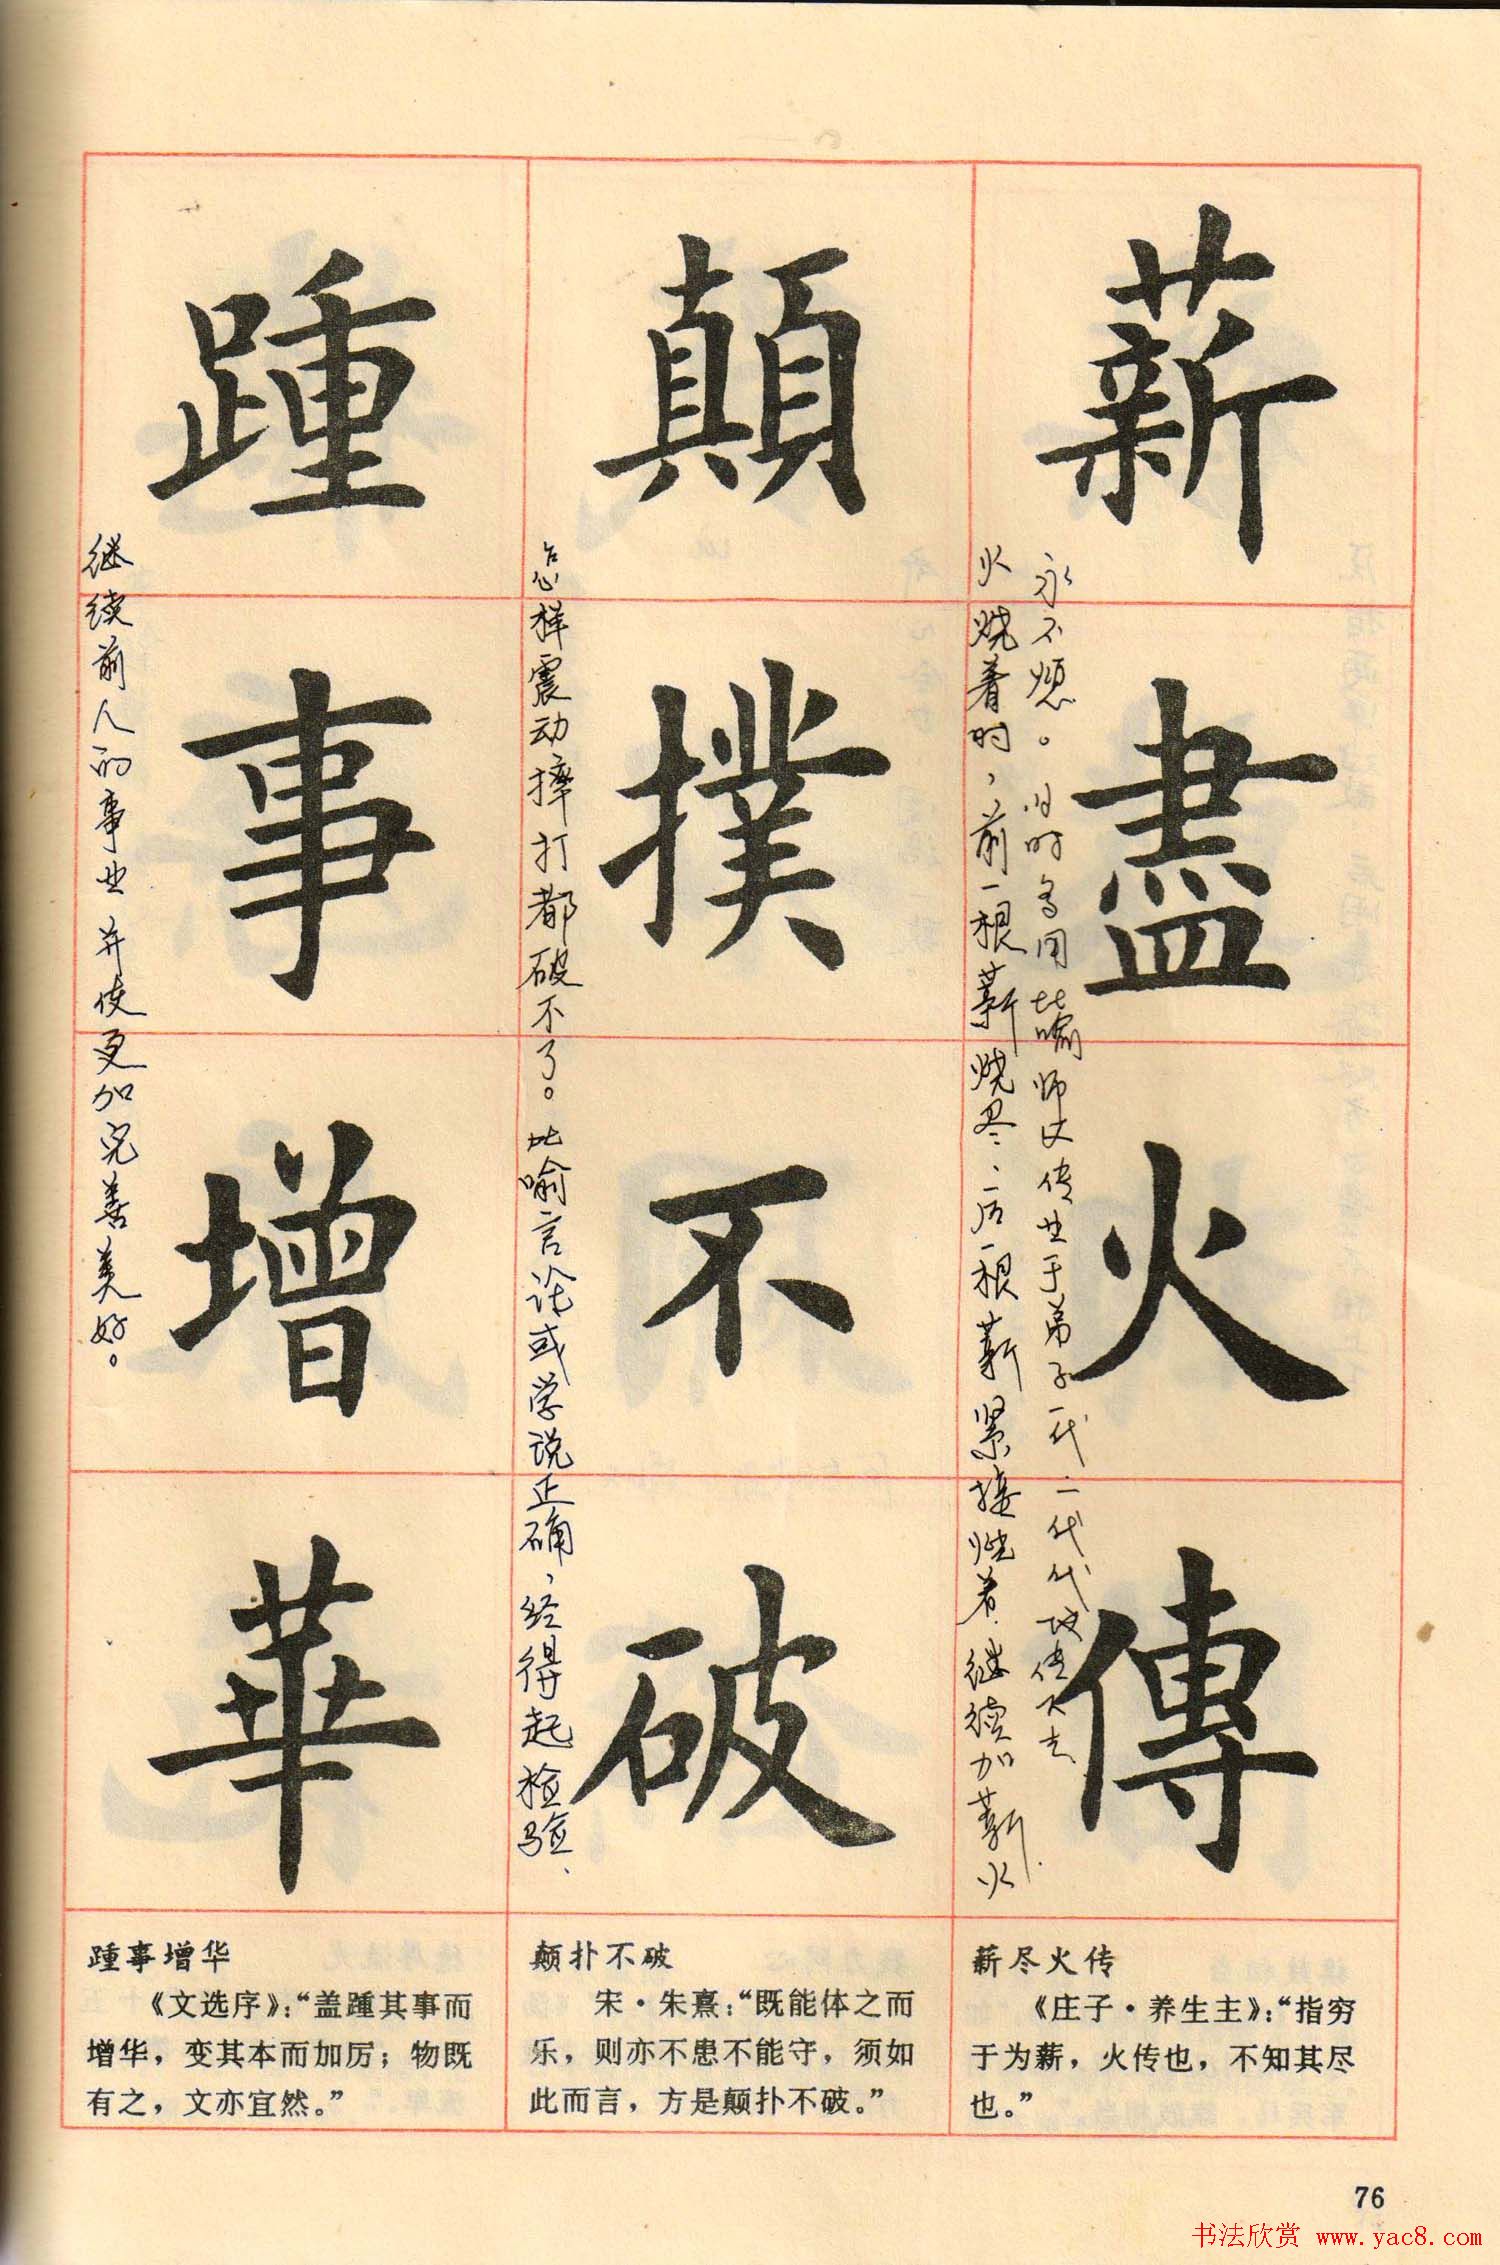 薪盡火傳
火烧着时，前一根薪烧尽，后一根薪紧接烧着，继续加薪火
永不熄。旧时多用比喻师父传业于弟子一代一代代攻传下去
顛撲不破
怎样震动摔打都破不了。比喻言论或学说正确，经得起检验、
踵事增華
继续前人的事业并使更加完善美好。
薪尽火传
《庄子·养生主》：“指穷
于为薪，火传也，不知其尽
也。”
颠扑不破
宋·朱熹：“既能体之而
乐，则亦不患不能守，须如
此而言，方是颠扑不破。”
踵事增华
《文选序》：“盖踵其事而
增华，变其本而加厉；物既
有之，文亦宜然。”
76
书法欣赏 www.yac8.com